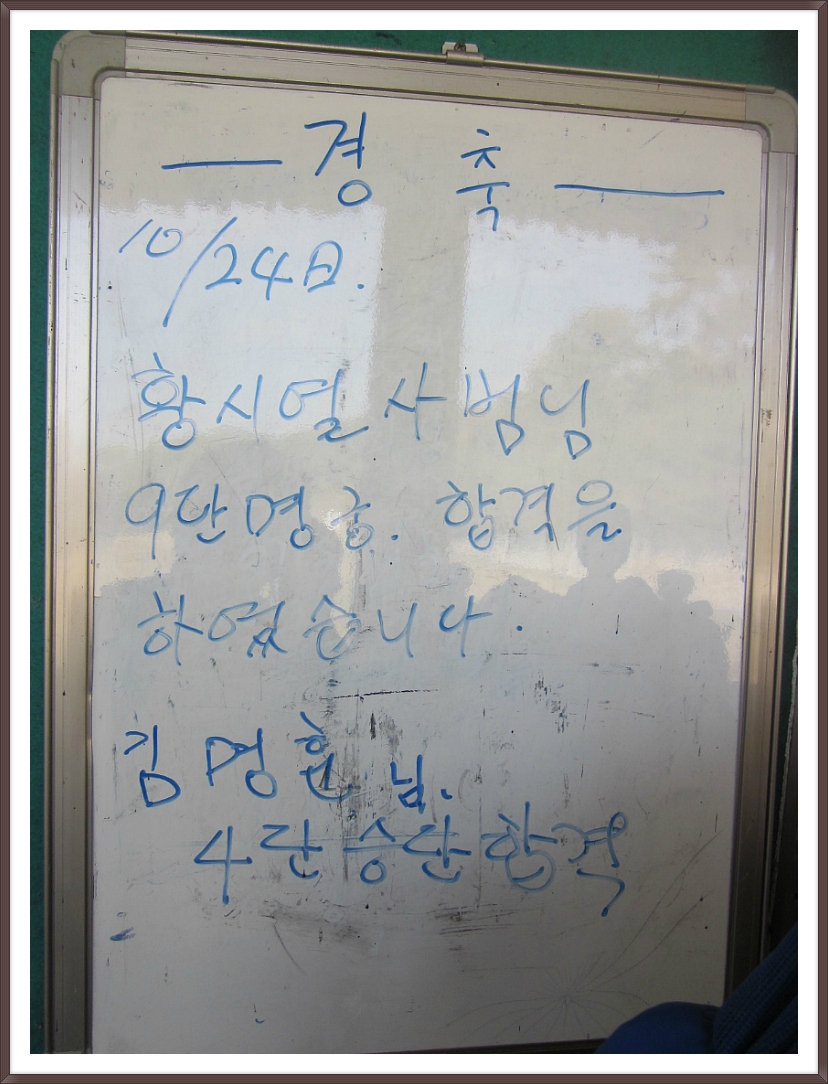 — 경 축 —
10/24日.
황시열 사범님
9단명궁. 합격을
하였습니다.
김 명환 님.
4단 승단합격